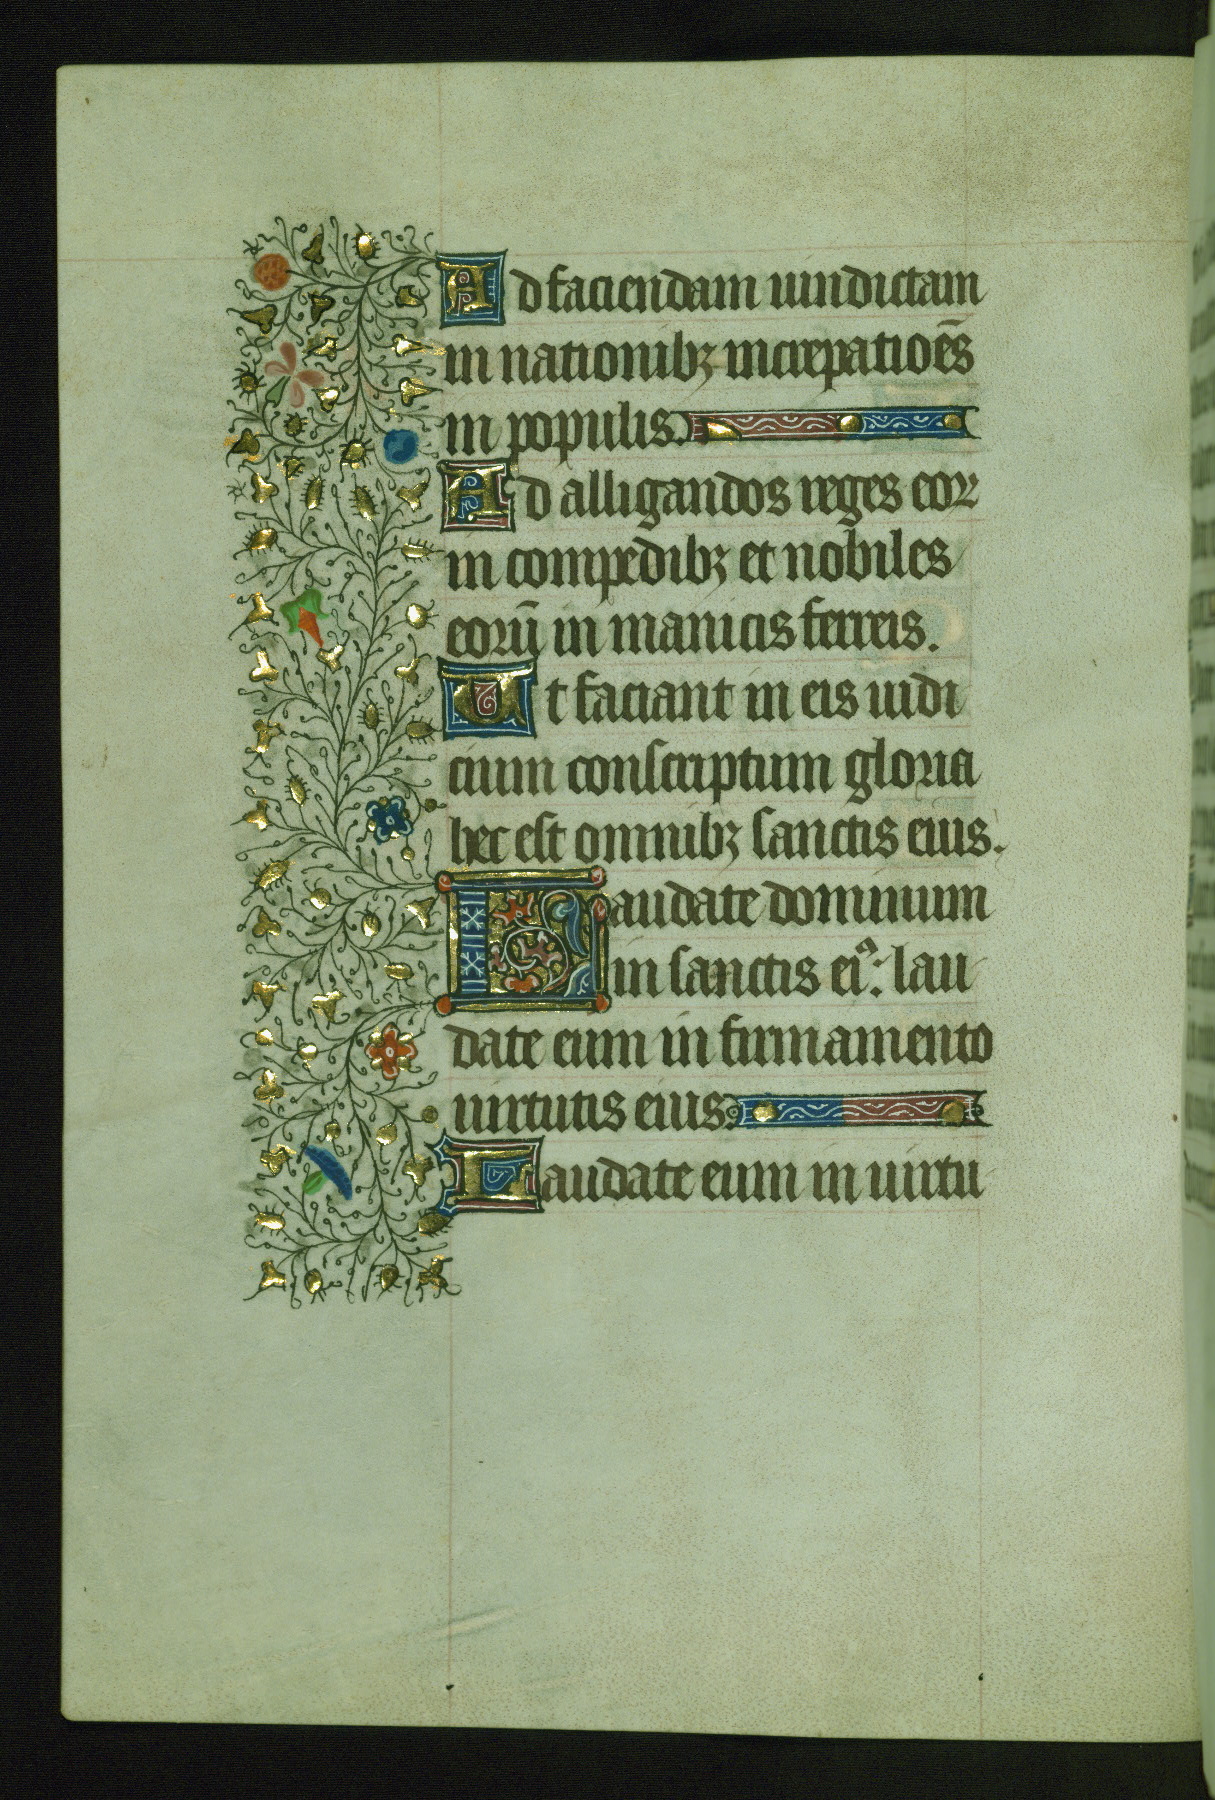 Ad faciendam uindictam
in nationibꝫ increpatiōēs
in populis.
Ad alligandos reges eoꝝ
in compedibꝫ et nobiles
eorū in manicis ferreis.
Ut faciant in eis iudi
cium conſcriptum gloria
hec eſt omnibꝫ ſanctis eius.
Laudate dominum
in ſanctis eiꝰ: lau
date eum in firmamento
uirtutis eius.
Laudate eum in uirtu